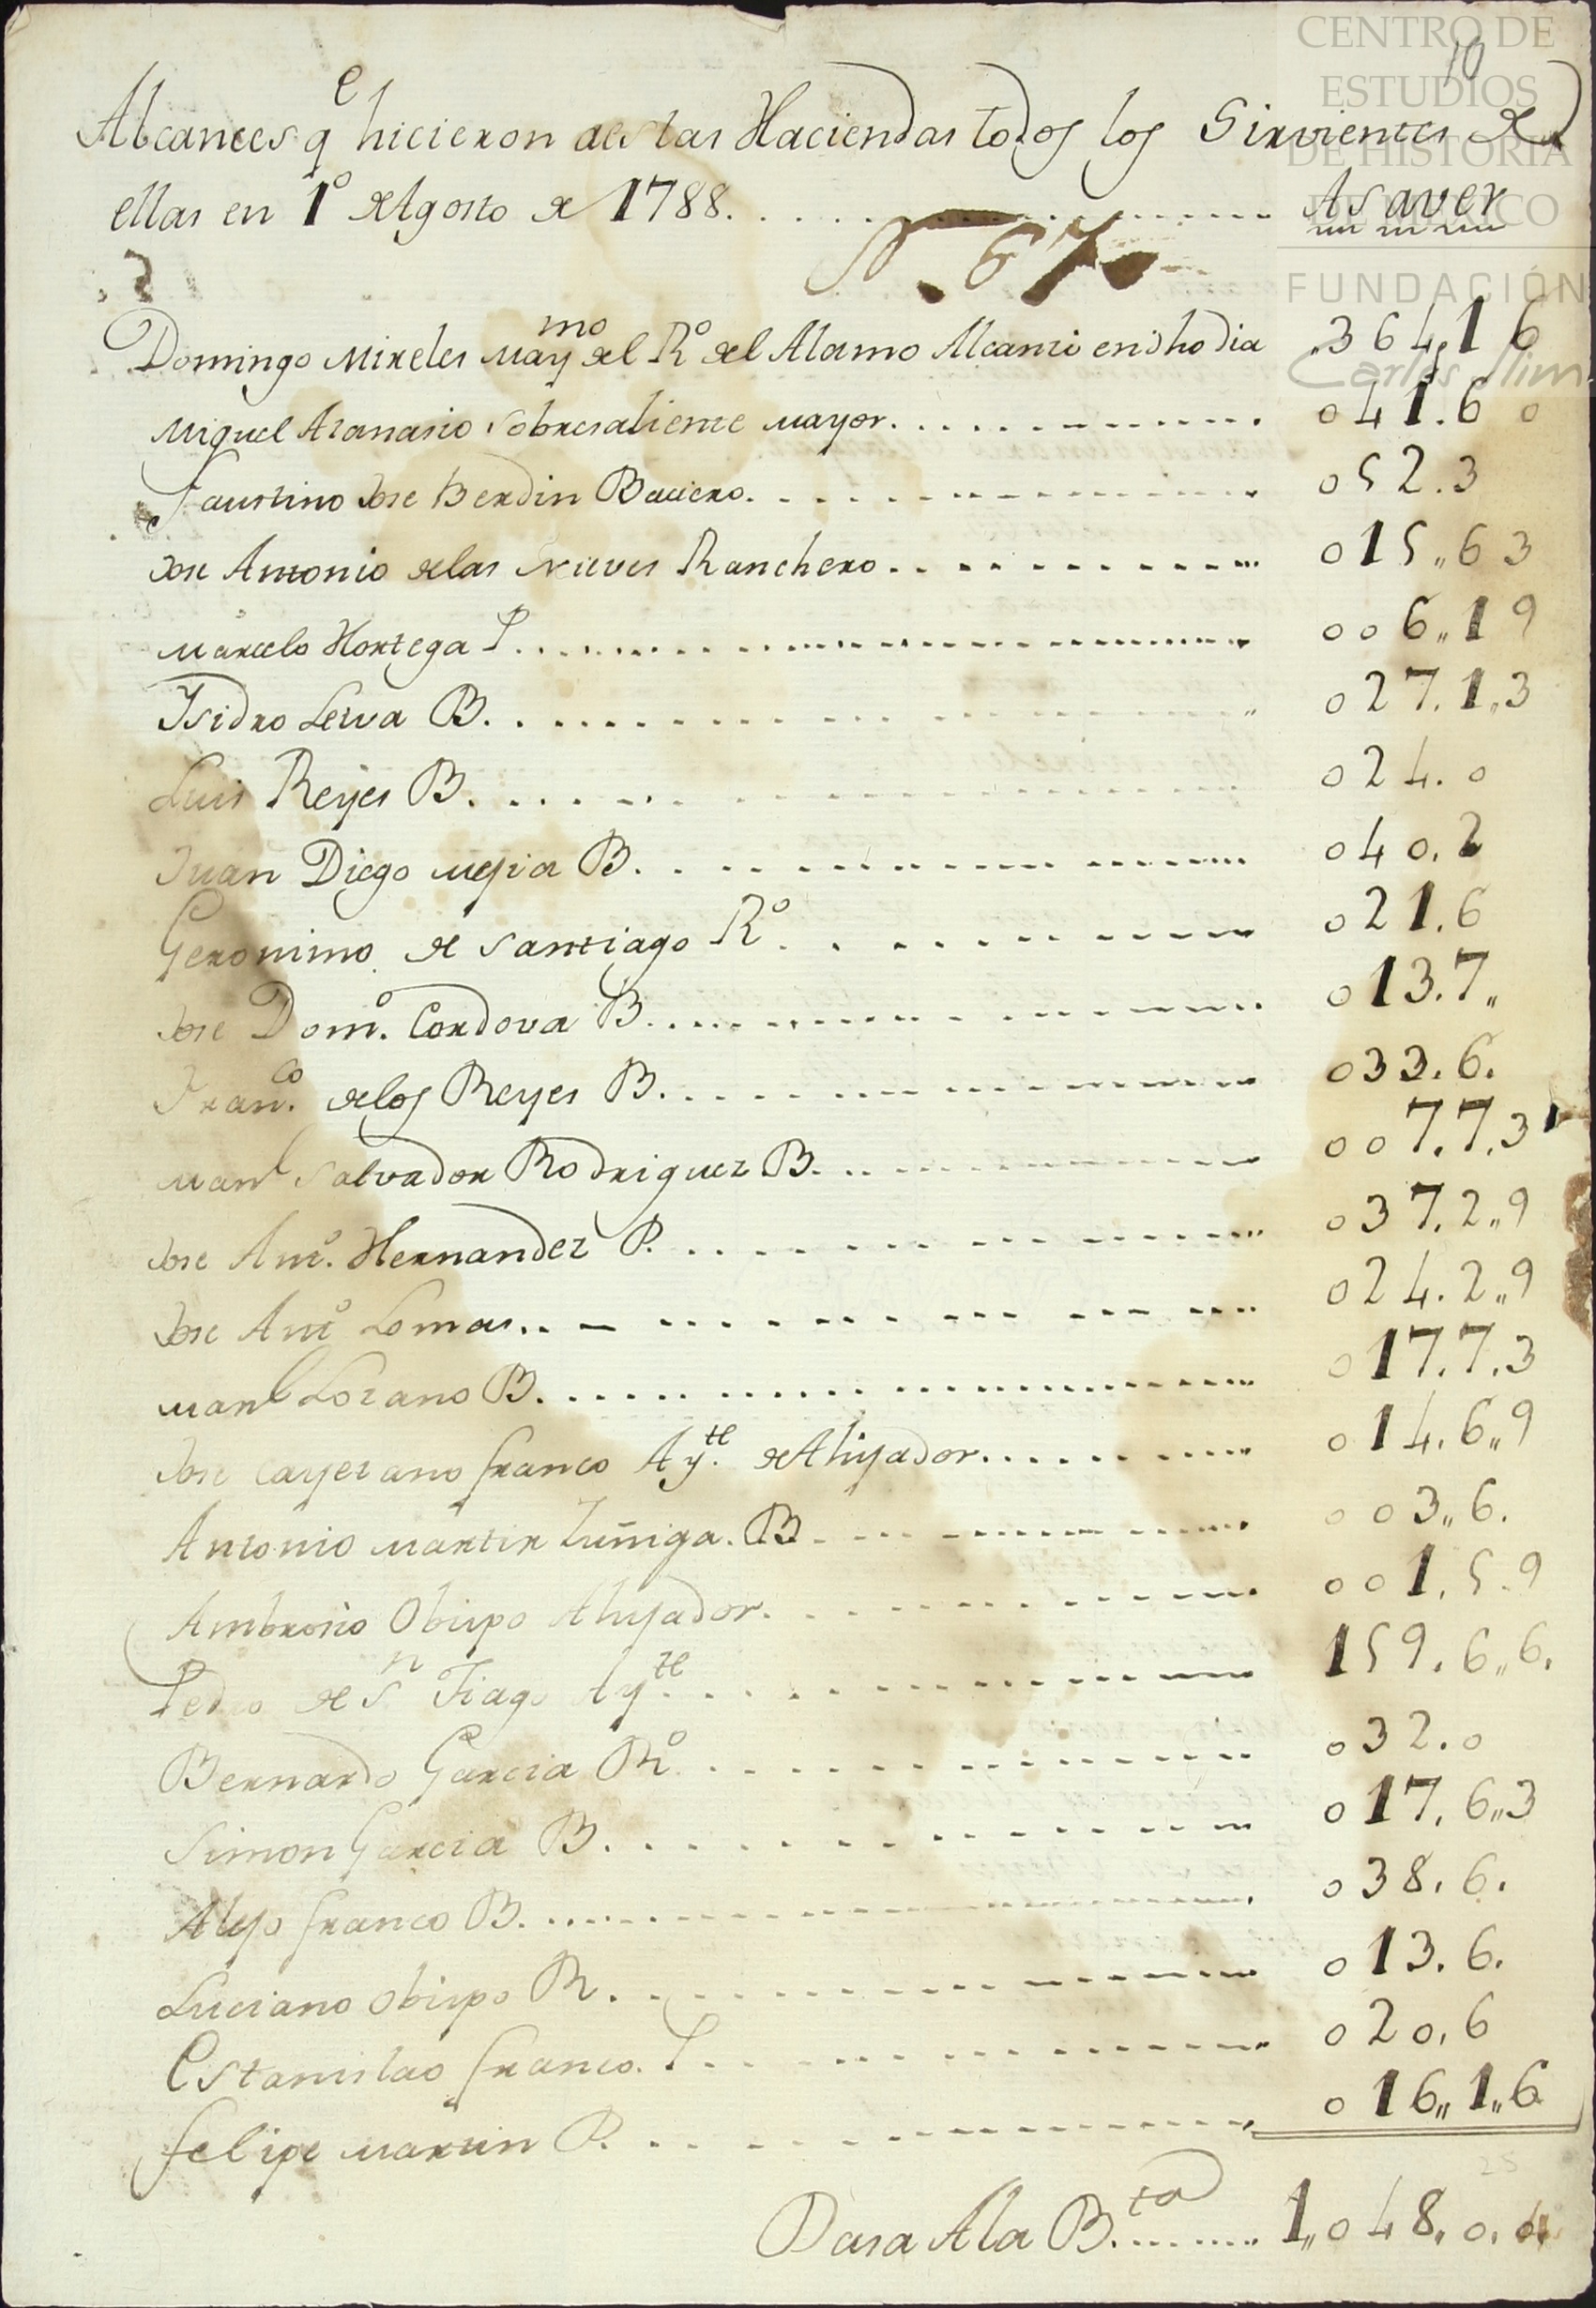 CENTRO DE
ESTUDIOS
DE HISTORIA
DE MÉXICO
FUNDACIÓN
Carlos Slim
10
Alcances q.e hicieron aestas Haciendas todos los Sirvientes de
ellas en 1º de Agosto de 1788. Asaver
N. 67
Domingo Mireles May.mo del Rº del Alamo Alcanzo endho dia 364,,1 6
Miguel Atanasio Sobresaliente mayor 041.6 0
Faustino Jose Berdin Baciero 052.3
Jose Antonio delas Nieves Ranchero 015,,63
Marcelo Hortega P 006,,19
Ysidro Leiva B. 027.1,,3
Luis Reyes B. 024.0
Juan Diego Mejia B. 040.2
Geronimo de Santiago Rº 021.6
Jose Dom.º Cordova B. 013.7,,
Fran.co delos Reyes B. 033.6.
Man.l Salvador Rodriguez B. 007.7.3
Jose Ant.º Hernandez P. 037.2,,9
Jose Ant.º Lomas 024.2,,9
Man.l Lozano B. 017.7.3
Jose Cayetano franco Ay.te de Ahijador 014.6,,9
Antonio Martin Zuñiga. B 003,,6.
Ambrosio Obispo Ahijador 001.5.9
Pedro de S.n Tiago Ay.te 159.6,,6.
Bernardo Garcia Rº 032.0
Simon Garcia B. 017.6,,3
Alejo franco B. 038.6.
Luciano Obispo R. 013.6.
Estanislao franco. P 020.6
felipe Martin P. 016,,1,,6
25
Pasa Ala B.ta 1,,048,,0.